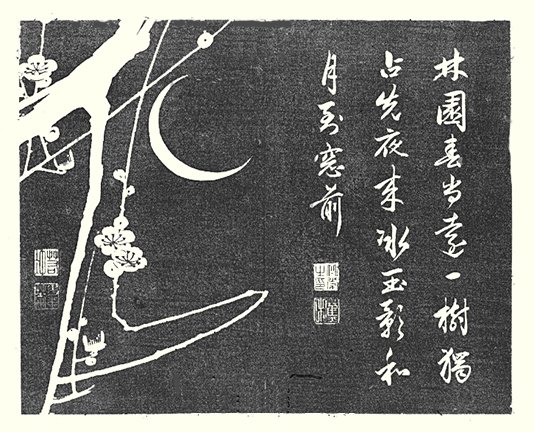 林園春尚遠一樹獨
占先夜来氷玉影和
月到窓前